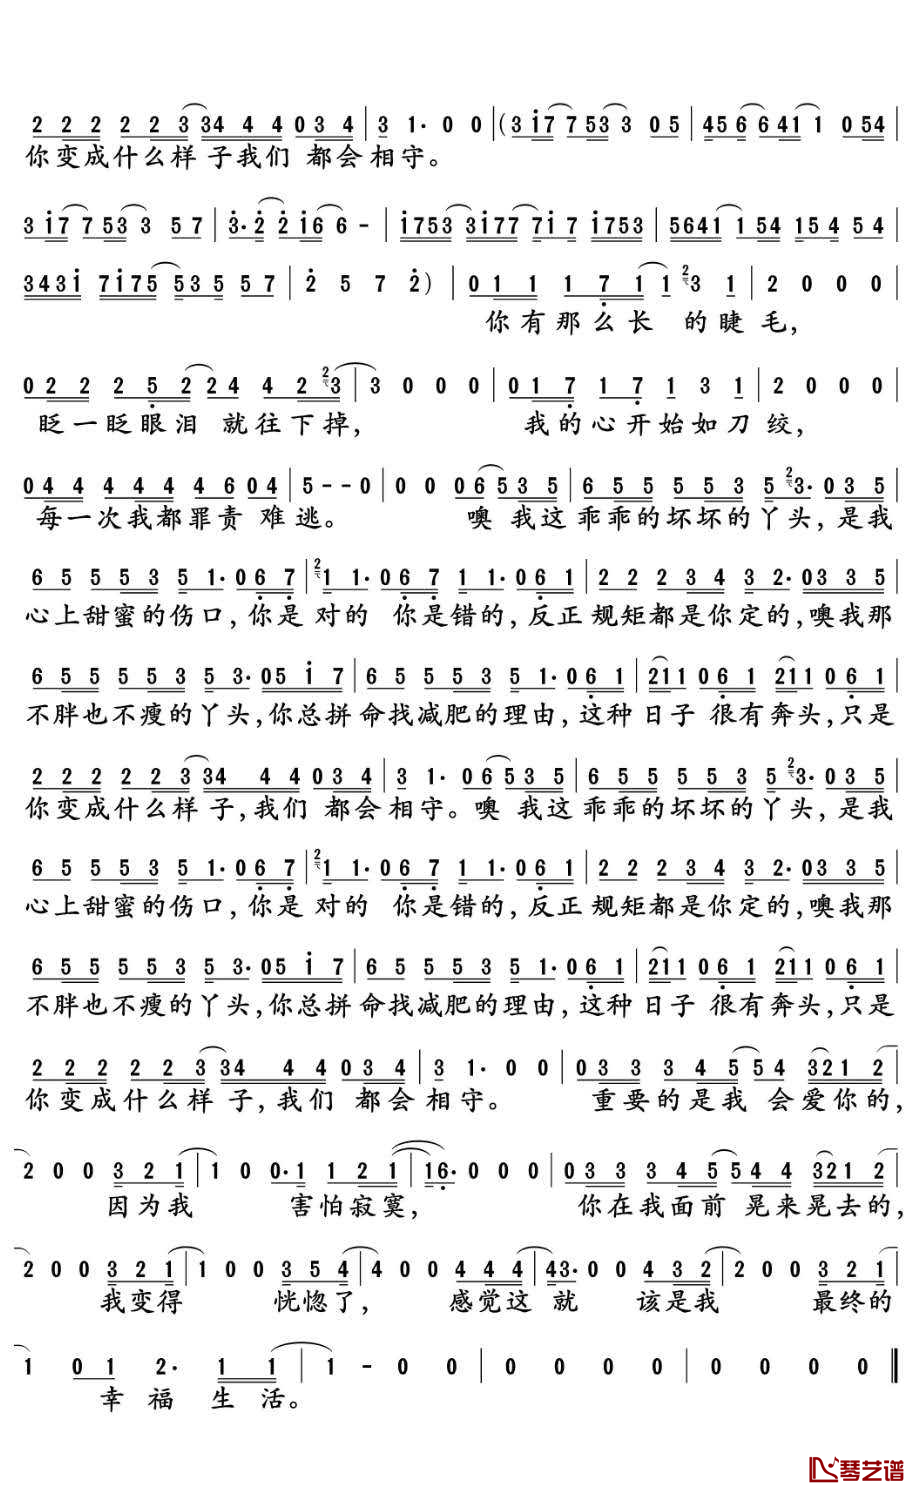 2 2 2 2 2 3 34 4 4 0 3 4 | 3 1· 0 0 |(3 i7 7 53 3 0 5 | 45 6 6 41 1 0 54 |
你变成什么样 子我们 都会相守。
3 i7 7 53 3 5 7 | 3·2 2 i6 6 - | i753 3i77 7i 7 i753 | 5641 1 54 15 4 5 4 |
343i 7i75 535 57 | 2 5 7 2 ) | 0 1 1 1 7 1 1 2 3 1 | 2 0 0 0 |
你有那么长 的睫毛,
0 2 2 2 5 2 2 4 4 2 2 3 | 3 0 0 0 | 0 1 7 1 7 1 3 1 | 2 0 0 0 |
眨一眨眼泪 就往下掉, 我的心开始如刀绞,
0 4 4 4 4 4 4 6 0 4 | 5 - - 0 | 0 0 0 6 5 3 5 | 6 5 5 5 5 3 5 2 3· 0 3 5 |
每一次我都罪责 难逃。 噢 我这乖乖的坏坏的丫头,是我
6 5 5 5 3 5 1· 0 6 7 | 2 1 1· 0 6 7 1 1· 0 6 1 | 2 2 2 3 4 3 2· 0 3 3 5 |
心上甜蜜的伤口,你是 对的 你是错的,反正规矩都是你定的,噢我那
6 5 5 5 5 3 5 3· 05 i 7 | 6 5 5 5 3 5 1· 0 6 1 | 211 0 6 1 211 0 6 1 |
不胖也不瘦的丫头,你总拼命找减肥的理由,这种日子 很有奔头,只是
2 2 2 2 2 3 34 4 4 0 3 4 | 3 1· 0 6 5 3 5 | 6 5 5 5 5 3 5 2 3· 0 3 5 |
你变成什么样 子,我们 都会相守。噢 我这乖乖的坏坏的丫头,是我
6 5 5 5 3 5 1· 0 6 7 | 2 1 1· 0 6 7 1 1· 0 6 1 | 2 2 2 3 4 3 2· 0 3 3 5 |
心上甜蜜的伤口,你是 对的 你是错的,反正规矩都是你定的,噢我那
6 5 5 5 5 3 5 3· 05 i 7 | 6 5 5 5 3 5 1· 0 6 1 | 211 0 6 1 211 0 6 1 |
不胖也不瘦的丫头,你总拼命找减肥的理由,这种日子 很有奔头,只是
2 2 2 2 2 3 34 4 4 0 3 4 | 3 1· 0 0 | 0 3 3 3 4 5 5 4 3 2 1 2 |
你变成什么样 子,我们 都会相守。 重要的是我 会爱你的,
2 0 0 3 2 1 | 1 0 0· 1 1 2 1 | 1 6· 0 0 0 | 0 3 3 3 4 5 5 4 4 3 2 1 2 |
因为我 害怕寂寞, 你在我面前 晃来晃去的,
2 0 0 3 2 1 | 1 0 0 3 5 4 | 4 0 0 4 4 4 | 43· 0 0 4 3 2 | 2 0 0 3 2 1 |
我变得 恍惚了, 感觉这 就 该是我 最终的
1 0 1 2· 1 1 | 1 - 0 0 | 0 0 0 0 | 0 0 0 0 ‖
幸 福 生 活。
琴艺谱